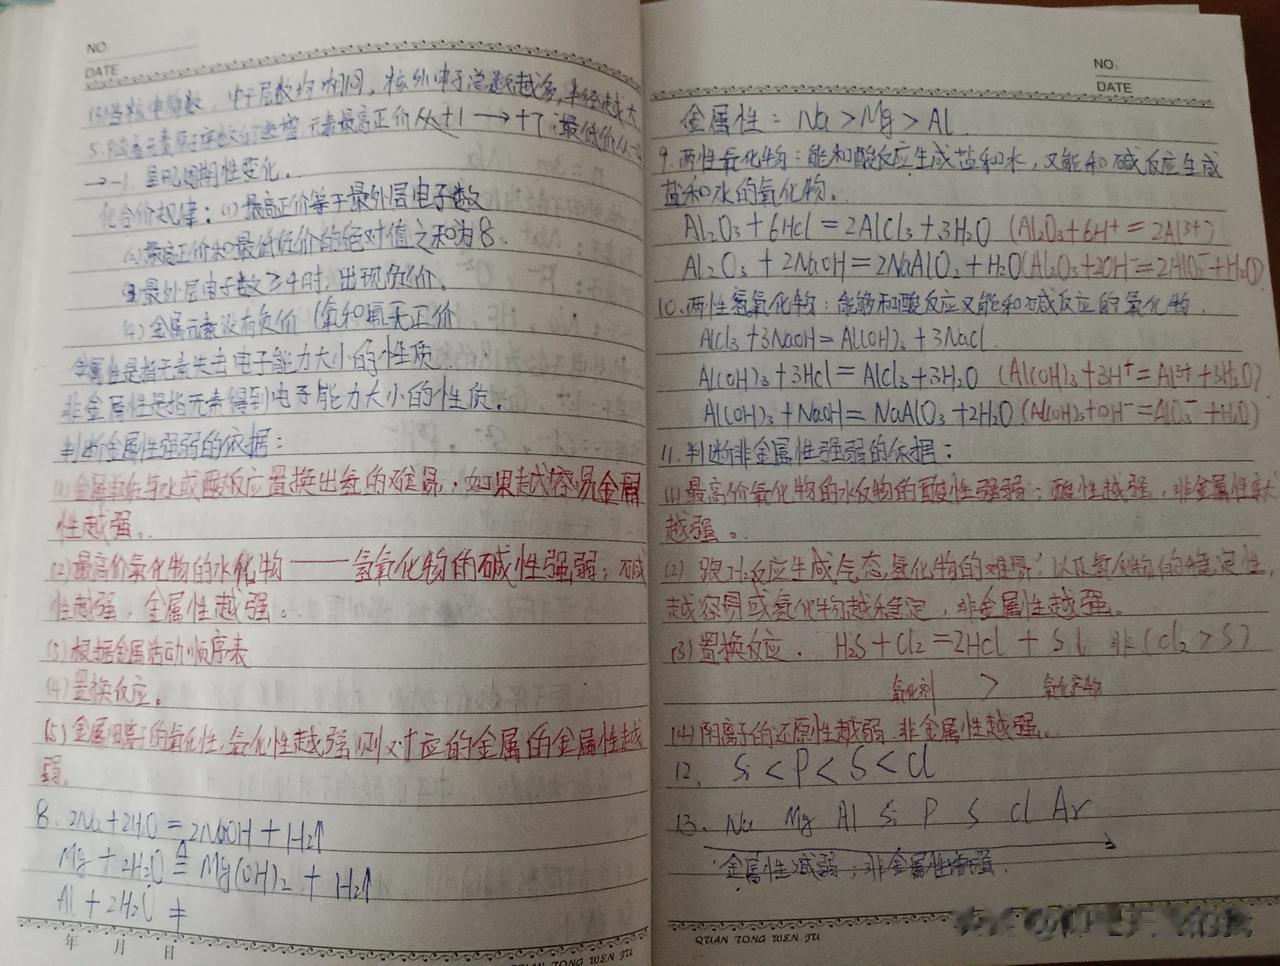 NO:
DATE
(3)当核电荷数、电子层数均相同，核外电子总数越多，半径越大
5.随着元素原子序数的递增，元素最高正价从+1⟶+7，最低价从-4
→-1 呈现周期性变化。
化合价规律：(1)最高正价等于最外层电子数
(2)最高正价和最低负价的绝对值之和为8.
(3)最外层电子数≥4时，出现负价。
(4)金属元素没有负价（氧和氟无正价）
金属性是指元素失去电子能力大小的性质
非金属性是指元素得到电子能力大小的性质。
判断金属性强弱的依据：
(1)金属单质与水或酸反应置换出氢的难易，如果越容易金属
性越强。
(2)最高价氧化物的水化物——氢氧化物的碱性强弱；碱
性越强，金属性越强。
(3)根据金属活动顺序表
(4)置换反应。
(5)金属阳离子的氧化性，氧化性越强则对应的金属的金属性越
弱。
8. 2Na+2H₂O=2NaOH+H₂↑
Mg+2H₂O≜Mg(OH)₂+H₂↑
Al+2H₂O ≠
年 月 日
QUAN TONG WEN JU
NO:
DATE
金属性：Na>Mg>Al
9.两性氧化物：能和酸反应生成盐和水，又能和碱反应生成
盐和水的氧化物。
Al₂O₃+6HCl=2AlCl₃+3H₂O (Al₂O₃+6H⁺=2Al³⁺)
Al₂O₃+2NaOH=2NaAlO₂+H₂O(Al₂O₃+2OH⁻=2AlO₂⁻+H₂O)
10.两性氢氧化物：能够和酸反应又能和碱反应的氧化物.
AlCl₃+3NaOH=Al(OH)₃+3NaCl
Al(OH)₃+3HCl=AlCl₃+3H₂O (Al(OH)₃+3H⁺=Al³⁺+3H₂O)
Al(OH)₃+NaOH=NaAlO₃+2H₂O(Al(OH)₃+OH⁻=AlO₃⁻+H₂O)
11.判断非金属性强弱的依据：
(1)最高价氧化物的水化物的酸性强弱；酸性越强，非金属性
越强。
(2)跟H₂反应生成气态氢化物的难易，以及氢化物的稳定性，
越容易或氢化物越稳定，非金属性越强。
(3)置换反应. H₂S+Cl₂=2HCl+S↓ 非(Cl₂>S)
氧化剂 > 氧化产物
(4)阴离子的还原性越弱.非金属性越强。
12、Si<P<S<Cl
13. Na Mg Al Si P S Cl Ar
金属性减弱，非金属性增强.
QUAN TONG WEN JU